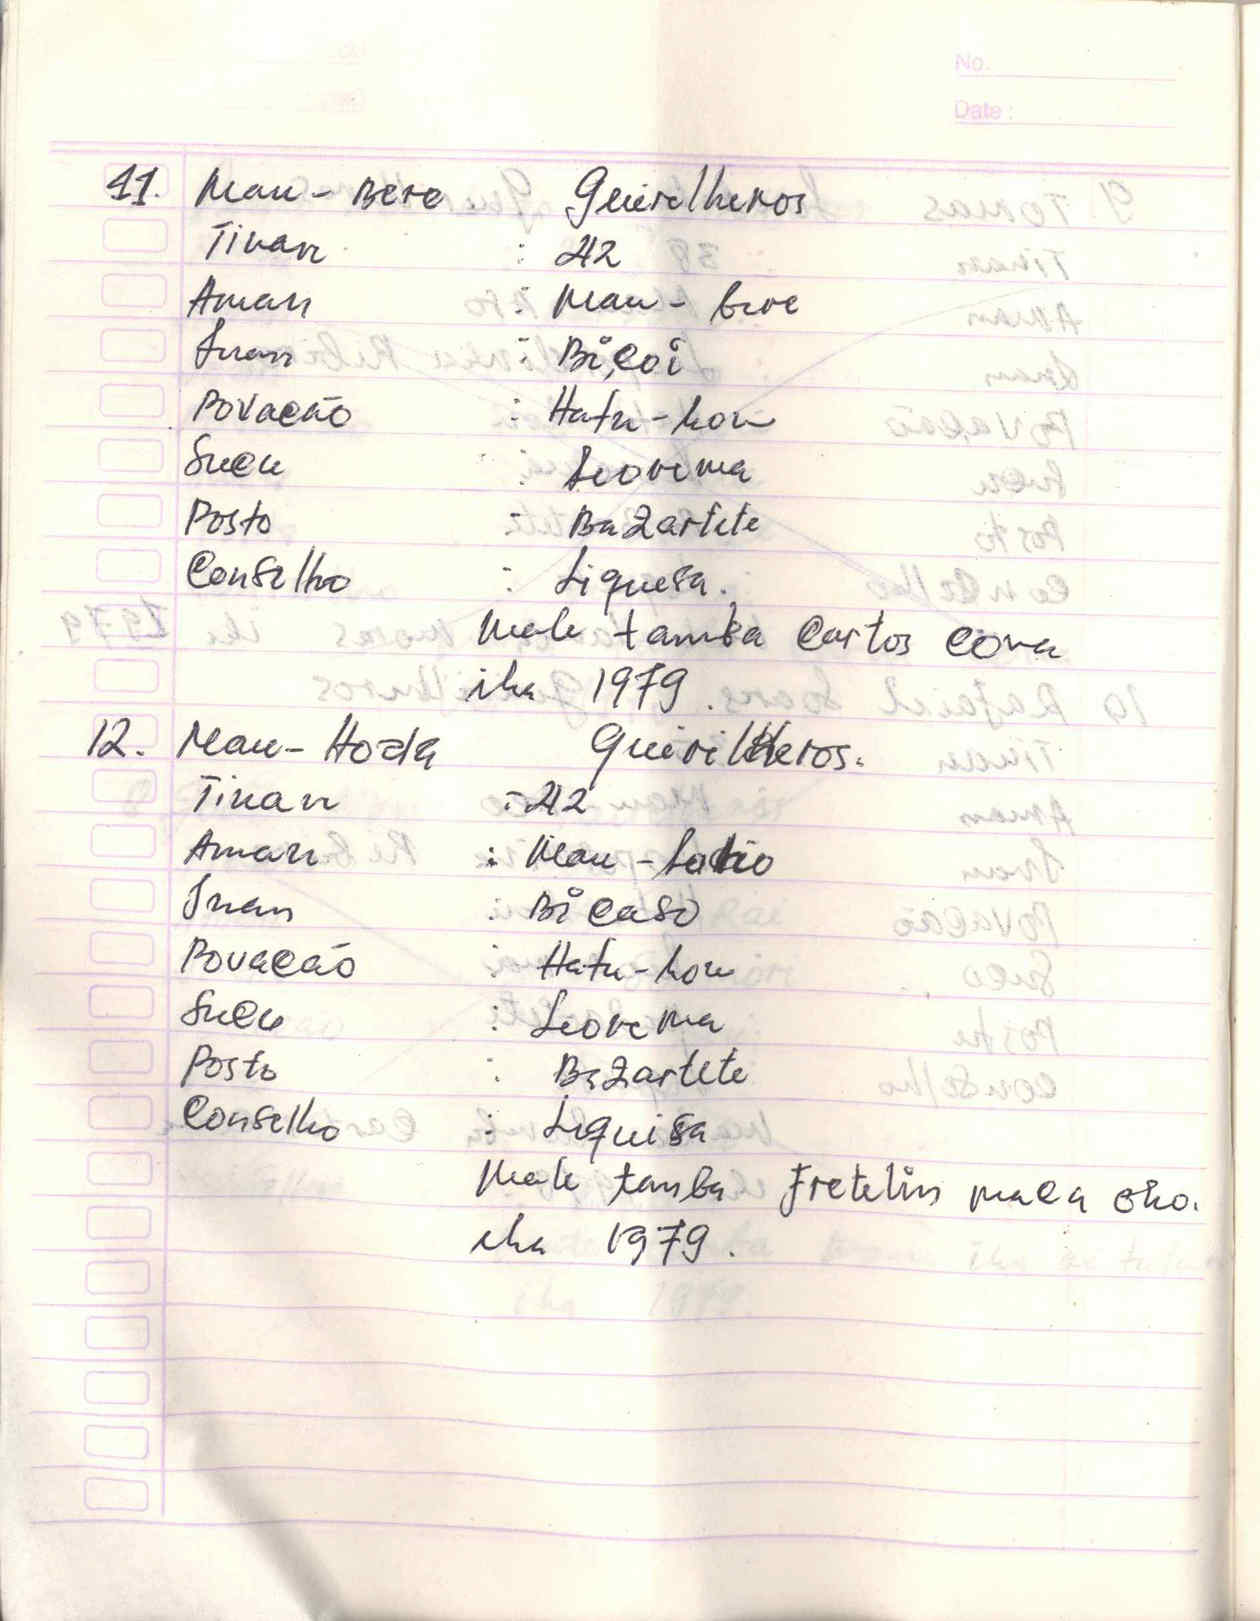 No.
Date :
11. Mau - Bere Gueirelheros
Tinan : 42
Aman : Mau - bere
Inan : Bi,coi
Povacão : Hatu - hou
Sucu : Leorema
Posto : Bazartete
Conselho : Liquisa.
Mate tamba Cartos Cona
iha 1979.
12. Mau - Hoda Gueirilheros.
Tinan : 42
Aman : Mau -
Inan : Bi caso
Povacão : Hatu - hou
Sucu : Leorema
Posto : Bazartete
Conselho : Liquisa
Mate tamba Fretelin maca oho.
iha 1979.